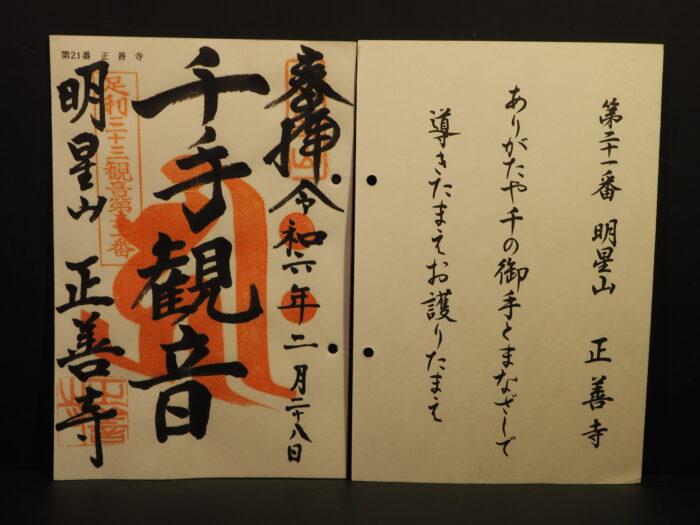 第21番 正善寺
奉拝
令和六年二月二十八日
千手観音
足利三十三観音第二十一番
明星山 正善寺
第二十一番 明星山 正善寺
ありがたや千の御手とまなざしで
導きたまえお護りたまえ